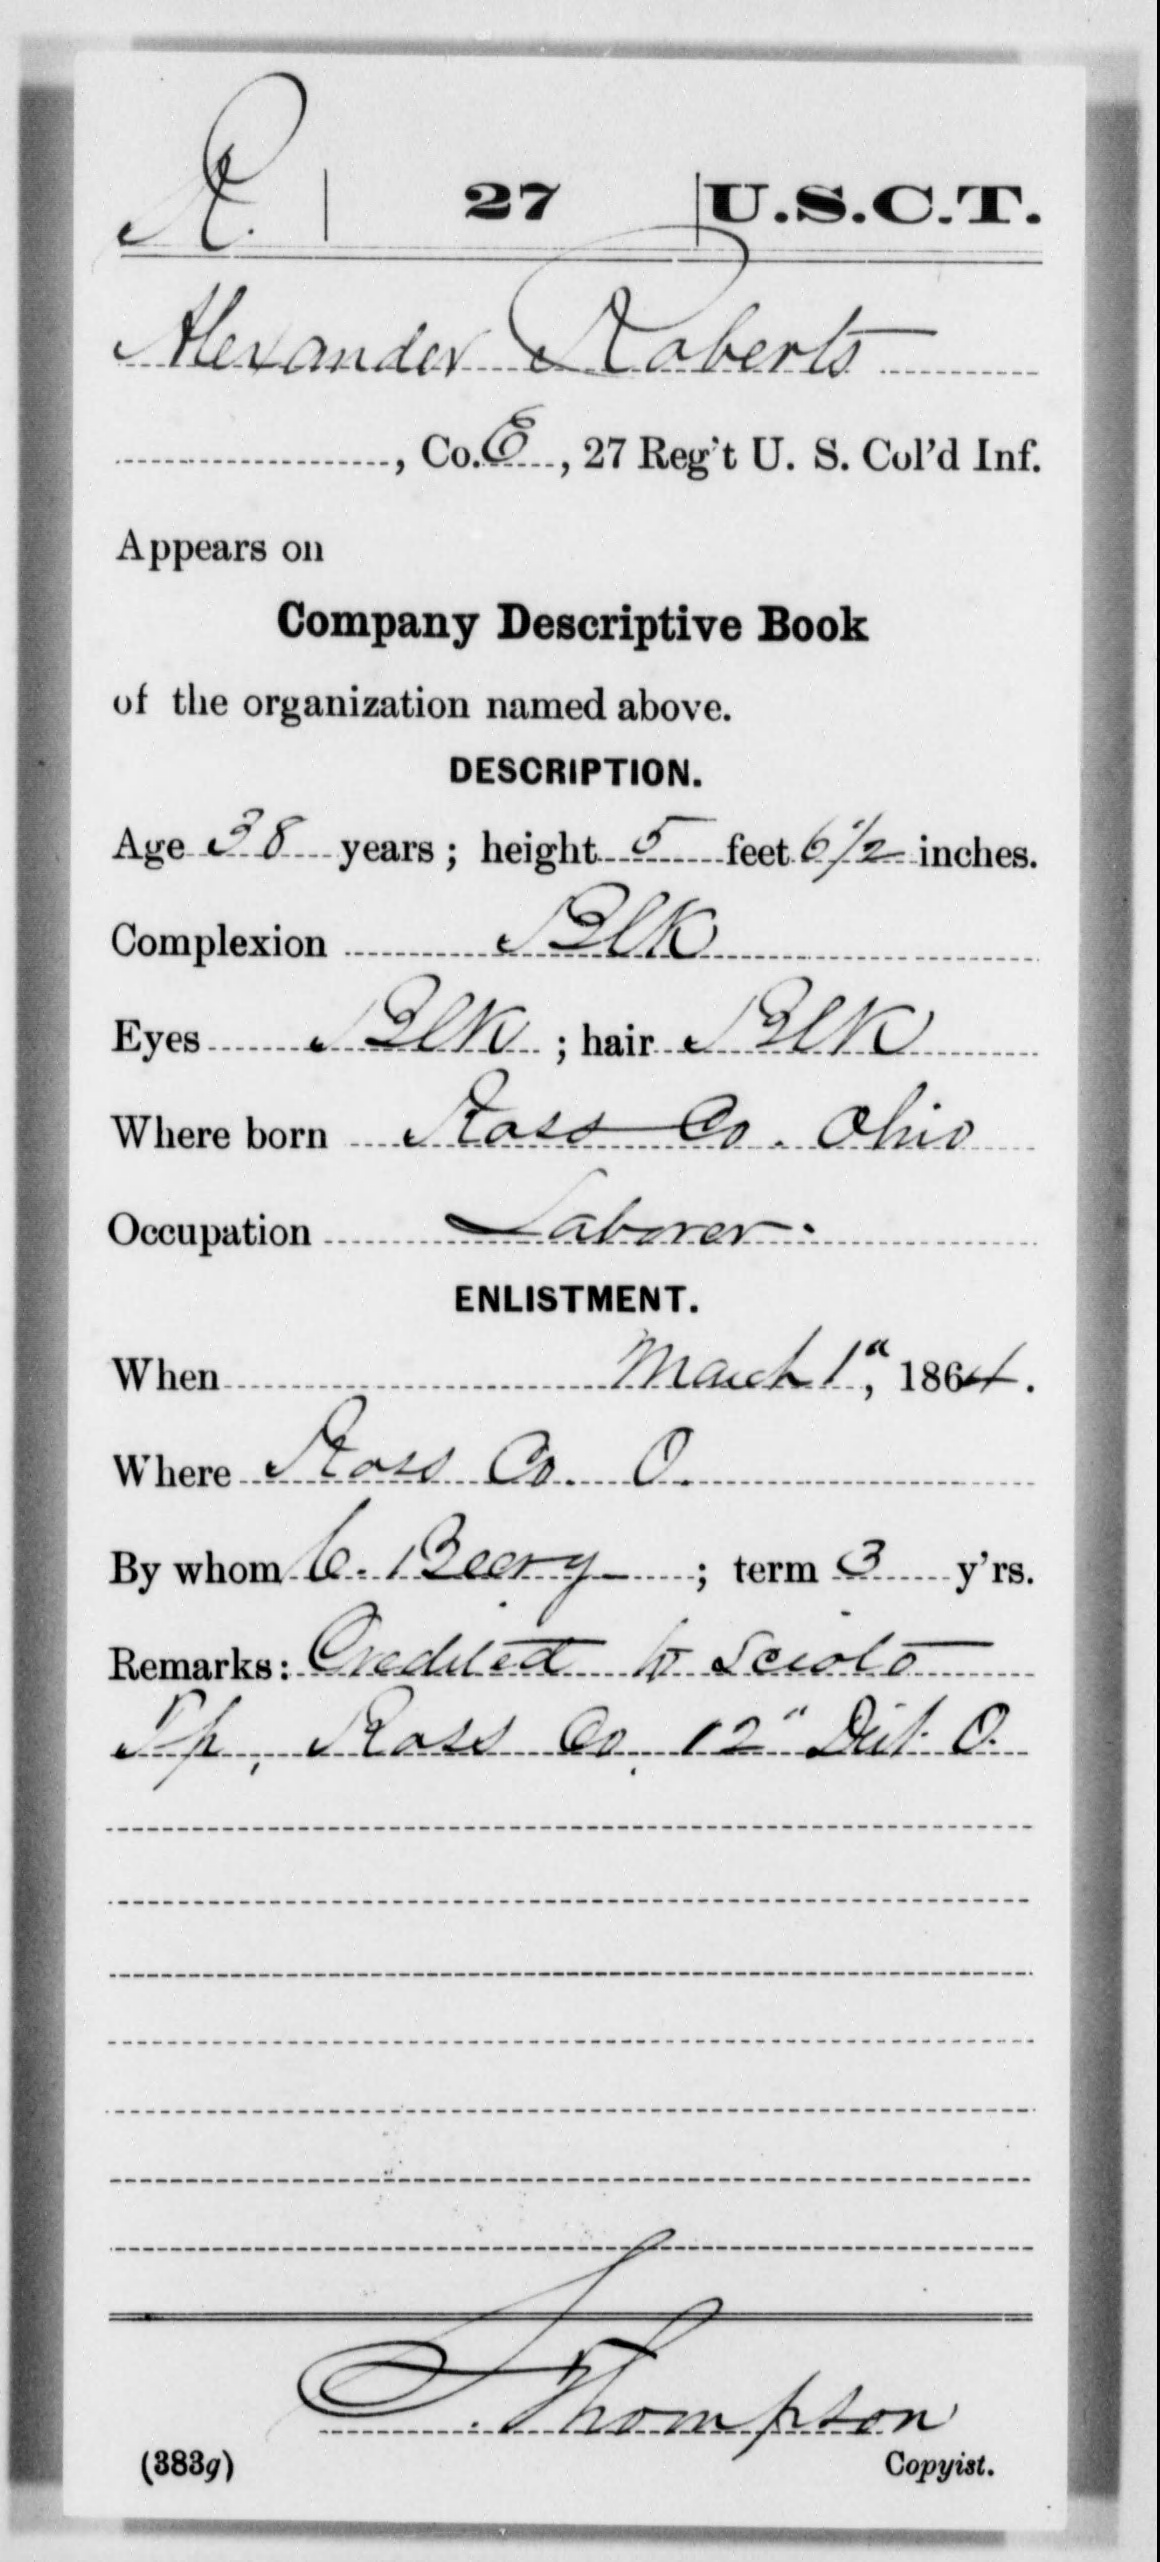 R. | 27 | U.S.C.T.
Alexander Roberts
, Co. E, 27 Reg't U. S. Col'd Inf.
Appears on
Company Descriptive Book
of the organization named above.
DESCRIPTION.
Age 38 years; height 5 feet 6 1/2 inches.
Complexion Blk
Eyes Blk; hair Blk
Where born Ross Co. Ohio
Occupation Laborer.
ENLISTMENT.
When March 1", 1864.
Where Ross Co. O.
By whom C. Beery; term 3 y'rs.
Remarks: Credited to Scioto
Tp, Ross Co, 12" Dist. O.
Thompson
(383g) Copyist.